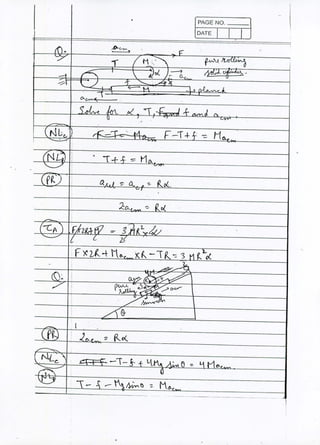 PAGE NO.
DATE
Q.
acm
F
M
pure rolling
T
α
acm
solid cylinder
f
M
planck
acm
Solve for α, T, f and acm.
NLc
F-T+f = Macm
NLp
T+f = Macm
PR
arel = acp = Rα
2acm = Rα
FX2R+Macm XR - TR = 3 MR²α
Q.
4M
pure rolling
smooth
θ
PR
2acm = Rα
NLc
-T-f+4Mg sinθ = 4Macm.
T-f-Mg sinθ = Macm